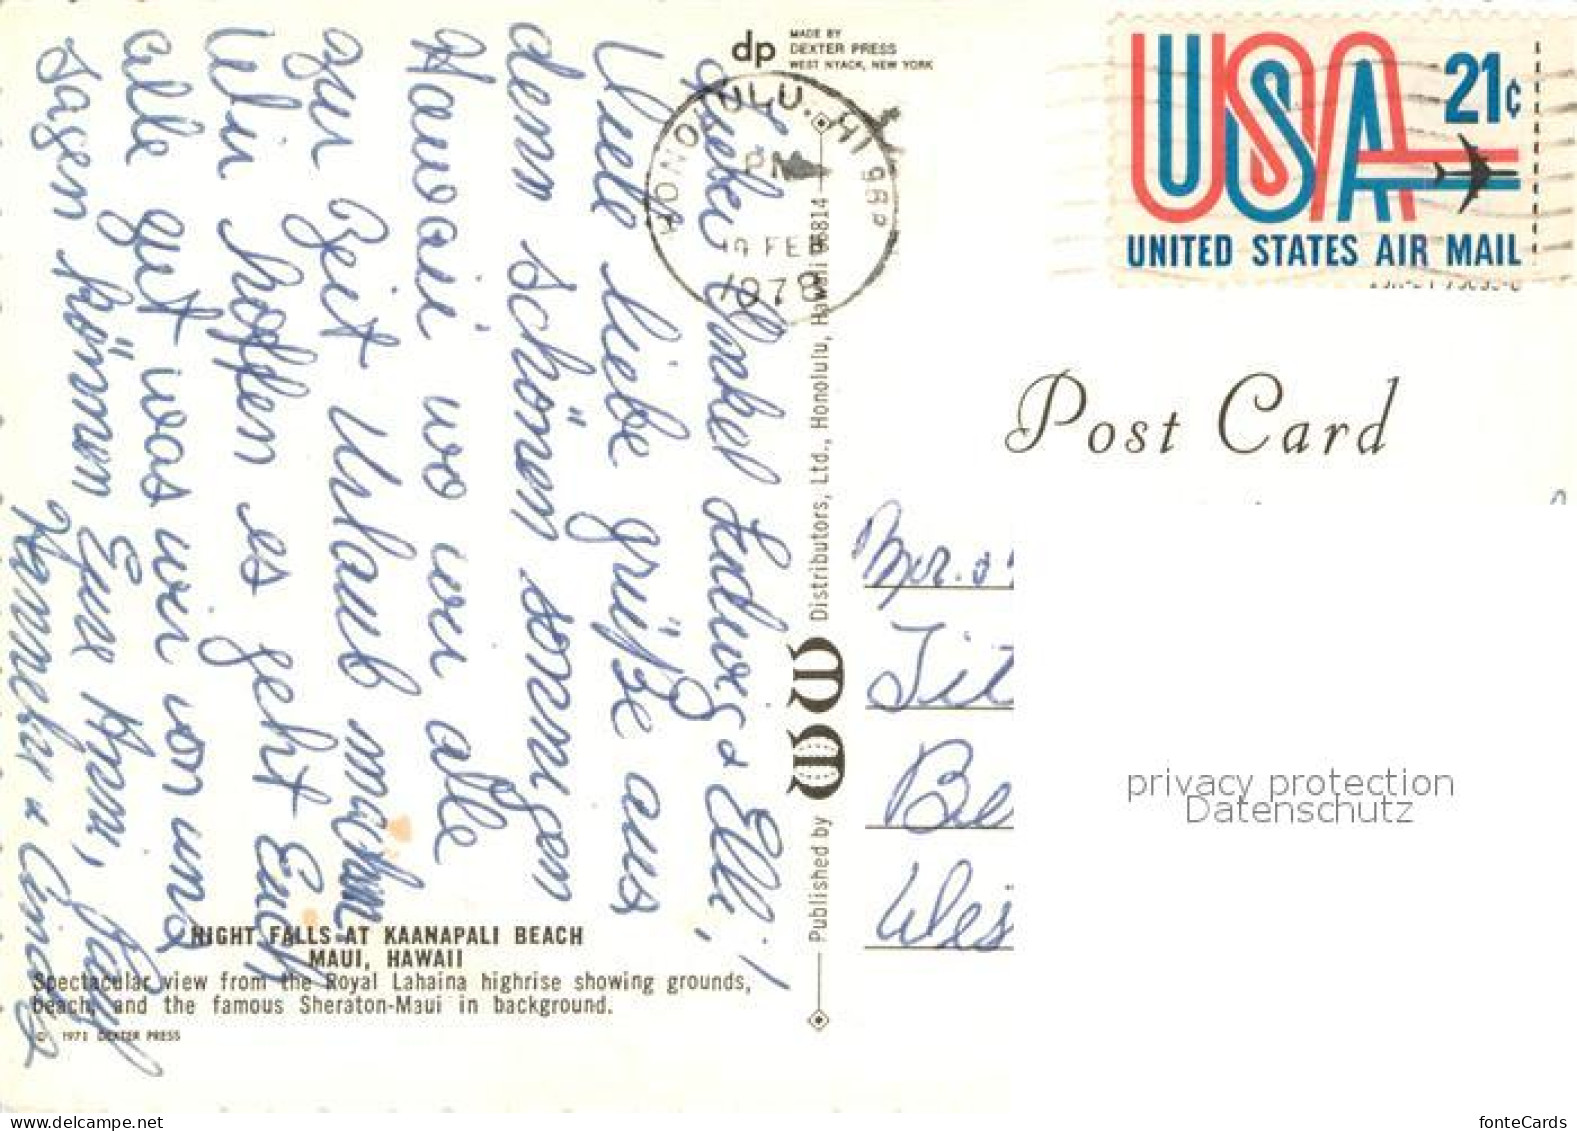 dp
MADE BY
DEXTER PRESS
WEST NYACK, NEW YORK
HONOLULU, HI 968
PM
FEB
1978
USA 21¢
UNITED STATES AIR MAIL
Post Card
Lieber Onkel Ludwig & Elli,!
Viele liebe grüße aus
dem schönen sonnigen
Hawaii wo wir alle
zur Zeit Urlaub machen
Wir hoffen es geht Euch
alle gut was wir von uns
sagen können Eure Anni,
&
Published by
Distributors, Ltd., Honolulu, Hawaii 96814
NIGHT FALLS AT KAANAPALI BEACH
MAUI, HAWAII
Spectacular view from the Royal Lahaina highrise showing grounds,
beach, and the famous Sheraton-Maui in background.
© 1971 DEXTER PRESS
privacy protection
Datenschutz
www.delcampe.net
fonteCards